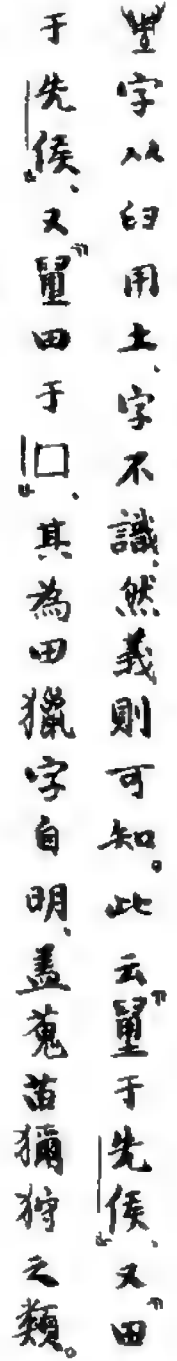 字从臼用土、字不識、然義則可知。此云『𡔞于先侯』、又『田
于先侯』、又『𡔞田于□』、其為田獵字自明、蓋蒐苗獮狩之類。